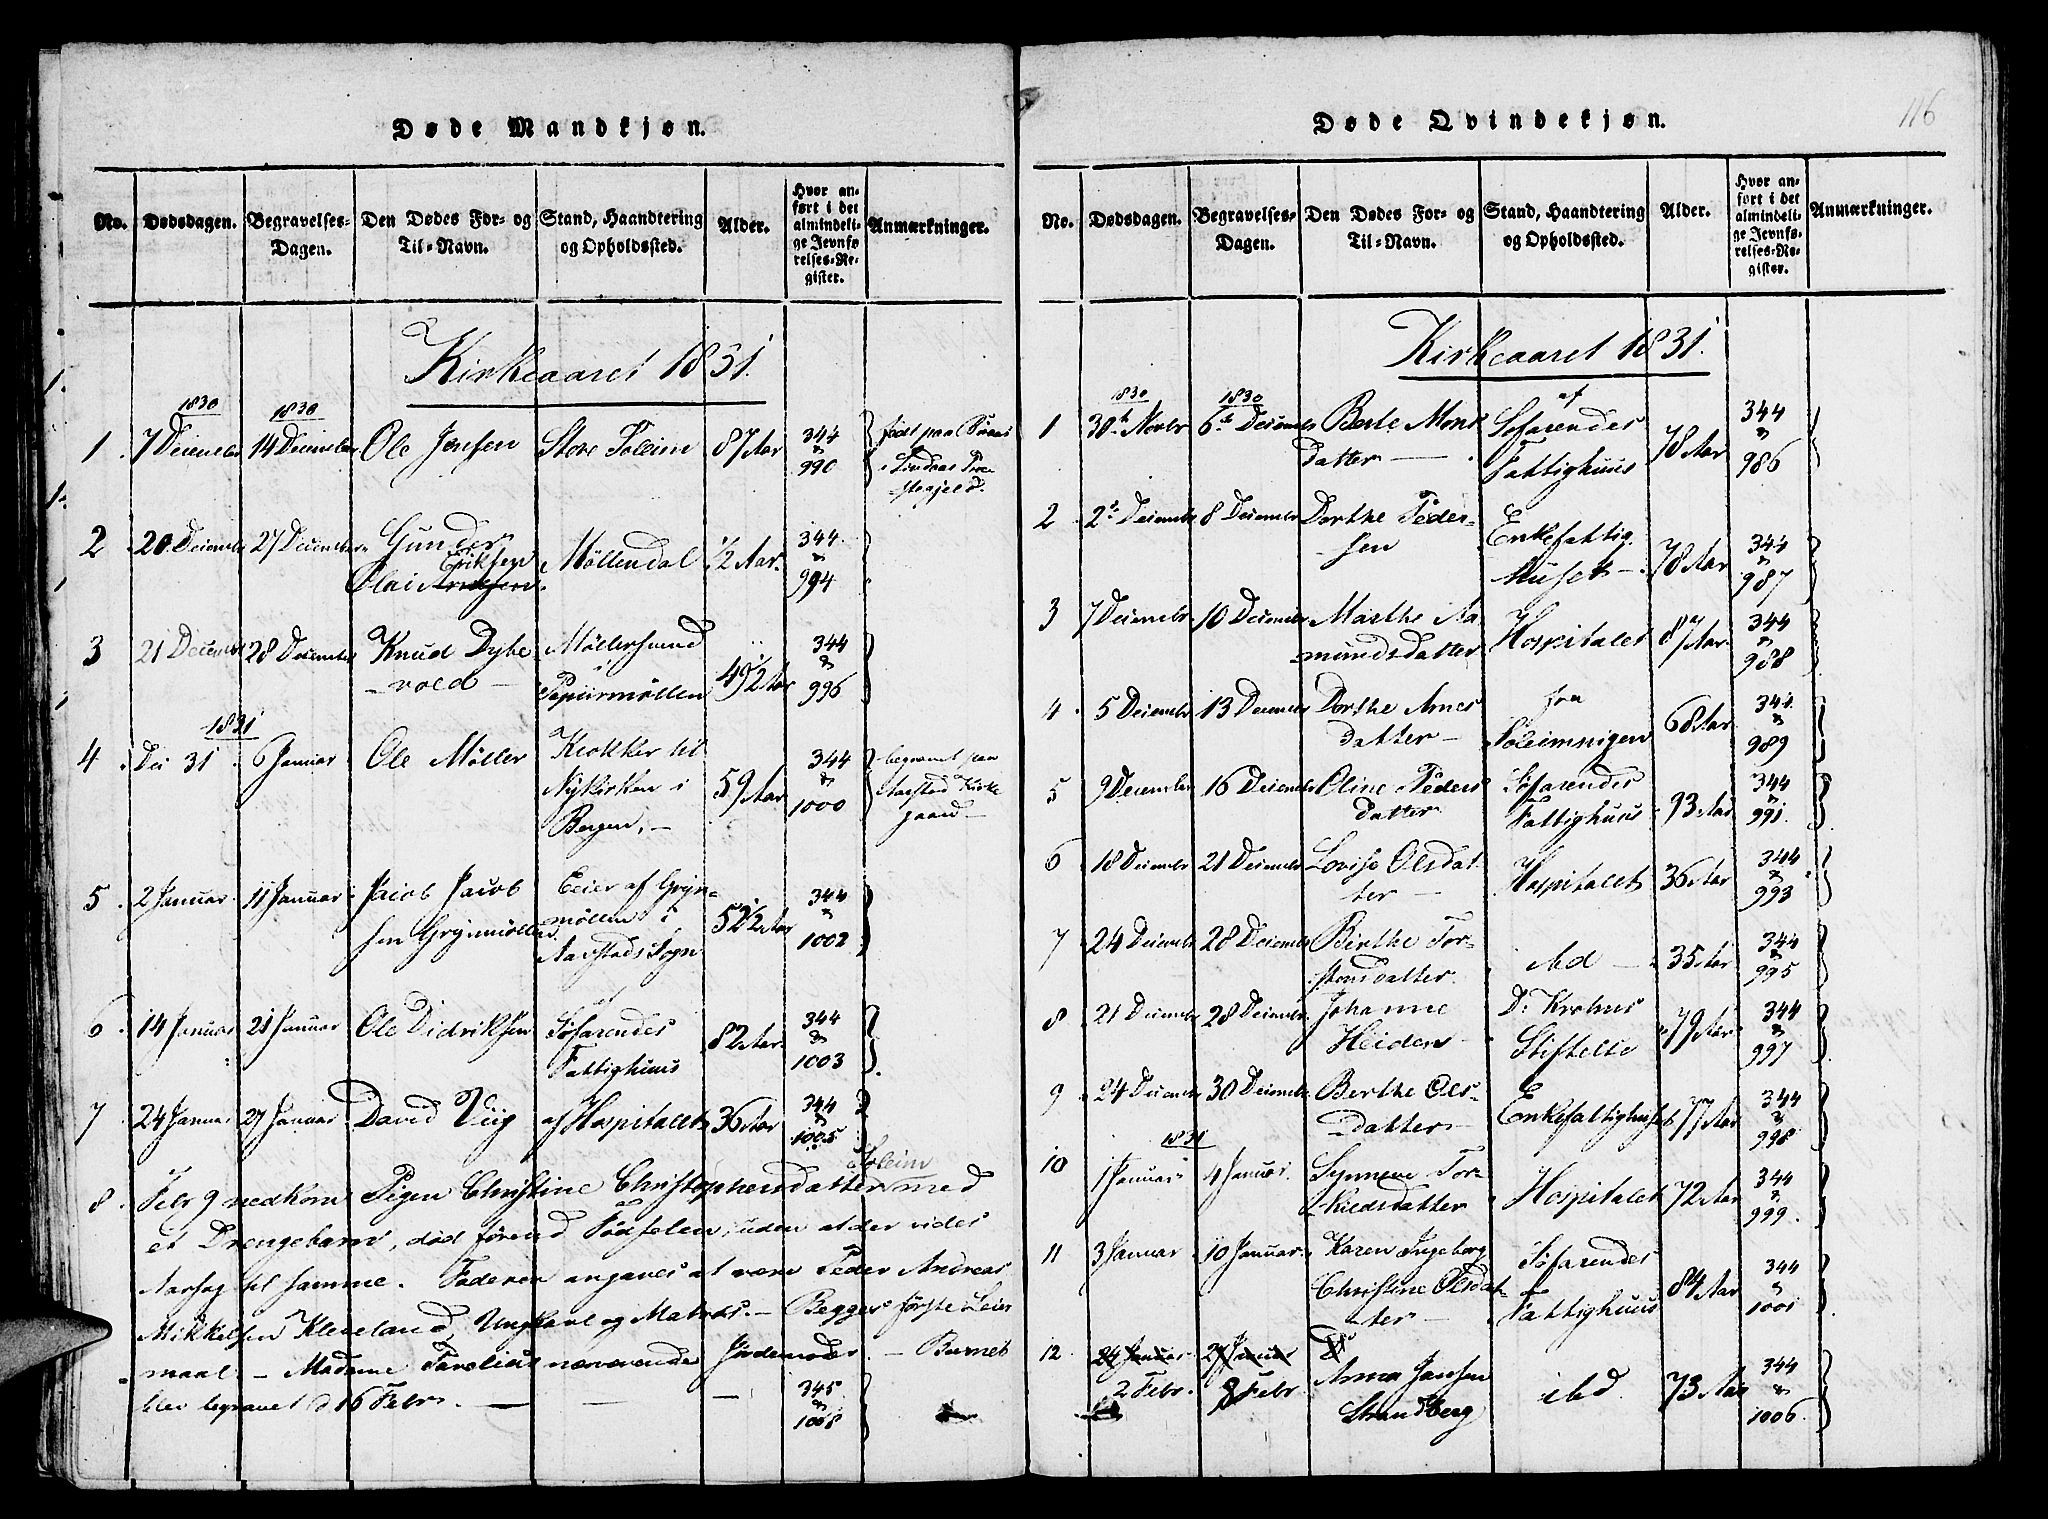 116
Døde Mandkjøn.
No. Dødsdagen. Begravelses-Dagen. Den Dødes For- og Til-Navn. Stand, Haandtering og Opholdssted. Alder. Hvor anført i det almindelige Jevnførelses-Register. Anmærkninger.
Kirkeaaret 1831.
1830 1830
1. 7 Decembr 14 Decembr Ole Jensen Store Soleim 87 Aar 344 & 990 født paa
Lindaas Præ
stegjeld.
2 20. Decembr 27 Decembr Gunder
Eriksen
Olai Møllendal ½ Aar. 344 & 994
3 21 Decembr 28 Decembr Knud Dybe Møllersvend
vold Papiirmøllen 49½ Aar 344 & 996
1831
4 Dec 31 6 Januar Ole Møller Klokker til
Nykirken i
Bergen. 59 Aar 344 & 1000 begravet paa
Aarstad Kirke
gaard
5 2 Januar 11 Januar Jacob Jacob
sen Grynmøllen Eeier af Gryn
møllen i
Aarstads Sogn 52½ Aar 344 & 1002
6 14 Januar 21 Januar Ole Didriksen af
Søfarendes
Fattighuus 82 Aar 344 & 1003
7 24 Januar 27 Januar David Viig af Hospitalet 36 Aar 344 & 1005
Soleim
8. Febr 9 nedkom Pigen Christine Christophersdatter med
et Drengebarn, død førend Fødselen, uden at der vides
Aarsag til samme. Faderen angaves at være Peder Andreas
Mikkelsen Kleveland, Ungkarl og Matros. — Begges første Leier
maal — Madame nærværende Jordemoder. — Barnet
blev begravet d 16 Febr. — 345 & 1008
Døde Qvindekjøn.
No. Dødsdagen. Begravelses-Dagen. Den Dødes For- og Til-Navn. Stand, Haandtering og Opholdssted. Alder. Hvor anført i det almindelige Jevnførelses-Register. Anmærkninger.
Kirkeaaret 1831.
1830 1830
1 30te Novbr 6te Decembr Berte Mons
datter af
Søfarendes
Fattighuus 78 Aar 344 & 986
2 2. Decembr 8 Decembr Dorthe Peder-
sen Enkefattig
huset 78 Aar 344 & 987
3 7 Decembr 10 Decembr Marthe Aa
mundsdatter Hospitalet 87 Aar 344 & 988
4 5 Decembr 13 Decembr Dorthe Arnes
datter fra
68 Aar 344 & 989
5 9 Decembr 16 Decembr Oline Peders
datter Søfarendes
Fattighuus 93 Aar 344 & 991
6 18 Decembr 21 Decembr Lovise Olsdat
ter Hospitalet 36 Aar 344 & 993
7 24 Decembr 28 Decembr Birthe Tor-
stensdatter ibd 35 Aar 344 & 995
8 21 Decembr 28 Decembr Johanne
Heiden D. Krohns
Stiftelse 79 Aar 344 & 997
9 24 Decembr 30 Decembr Berthe Ols-
datter Enkefattighuset 77 Aar 344 & 998
1831
10 1 Januar 4 Januar Synneve Tor
kildsdatter Hospitalet 72 Aar 344 & 999
11 3 Januar 10 Januar Karen Ingeborg
Christine Olsdat
ter Søfarendes
Fattighuus 84 Aar 344 & 1001
12 24 Januar 27 Januar
2 Febr. 8 Febr Anna Jansen
Strandberg ibd. 73 Aar 344 & 1006